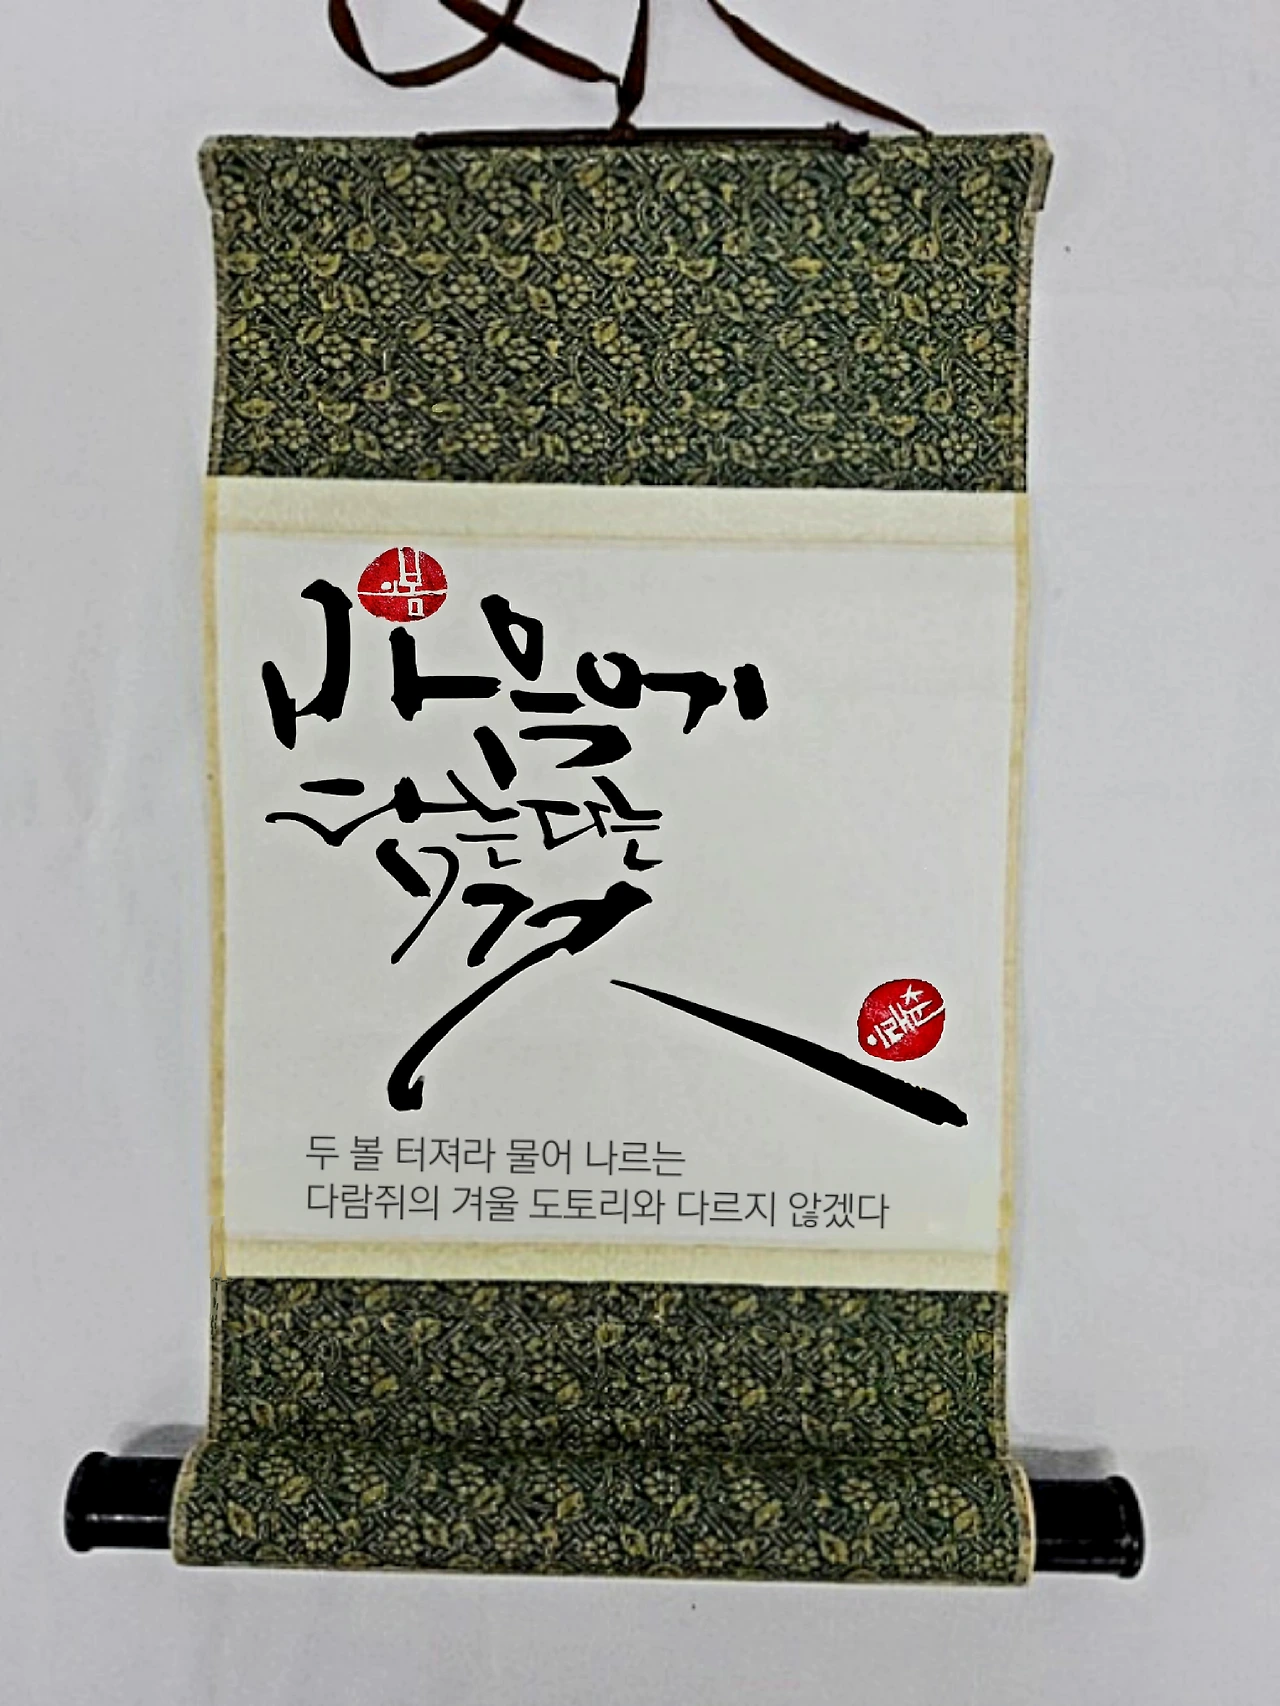 마음에
담는다는
것
두 볼 터져라 물어 나르는
다람쥐의 겨울 도토리와 다르지 않겠다